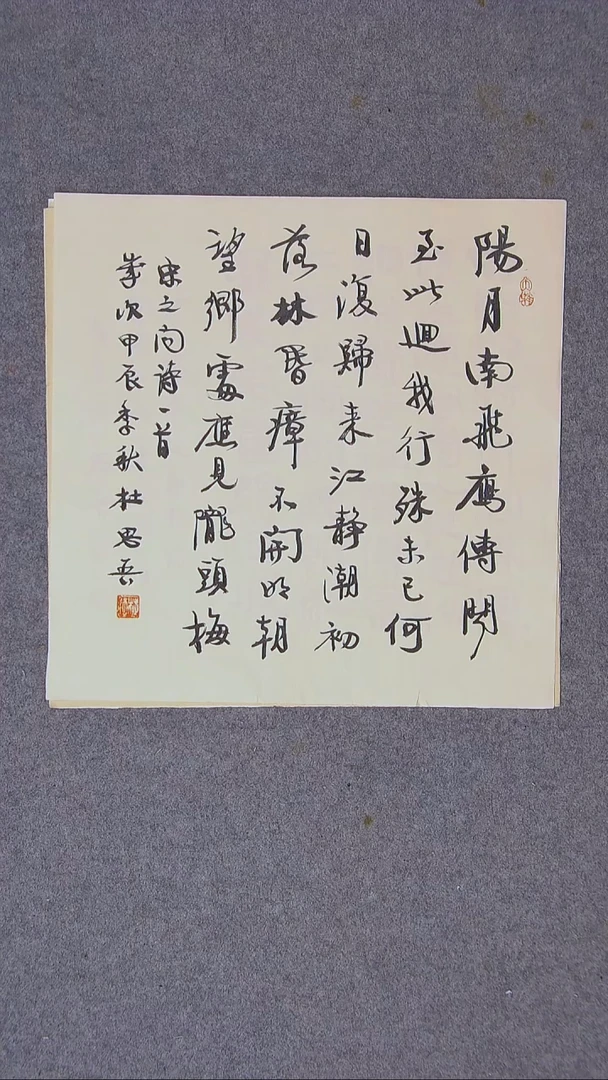 陽月南飛鴈傳聞
至此迴我行殊未已何
日復歸来江靜潮初
落林昏瘴不開明朝
望鄉處應見隴頭梅
宋之问詩一首
歲次甲辰季秋杜思吾